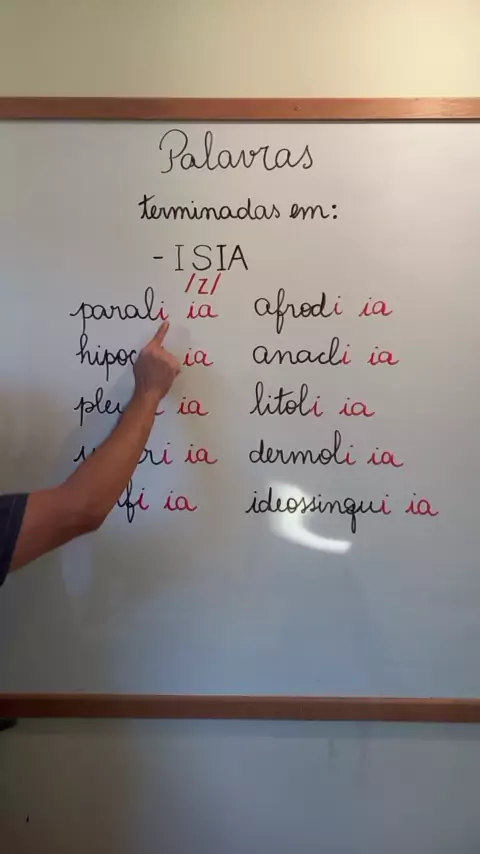 Palavras
terminadas em:
- ISIA
/z/
parali ia afrodi ia
ia anacli ia
ia litoli ia
ia dermoli ia
ia ideossinqui ia